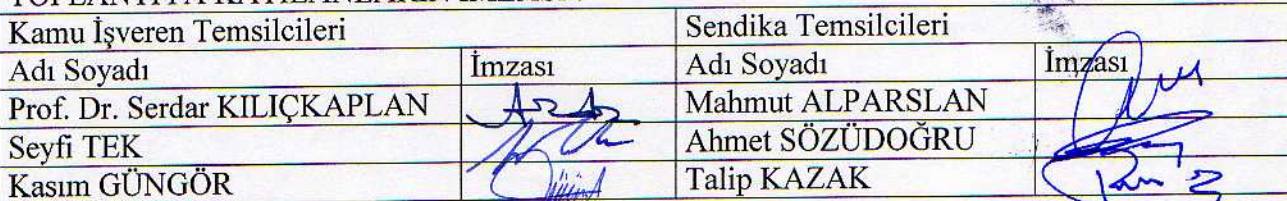 Kamu İşveren Temsilcileri Sendika Temsilcileri
Adı Soyadı İmzası Adı Soyadı İmzası
Prof. Dr. Serdar KILIÇKAPLAN Mahmut ALPARSLAN
Seyfi TEK Ahmet SÖZÜDOĞRU
Kasım GÜNGÖR Talip KAZAK